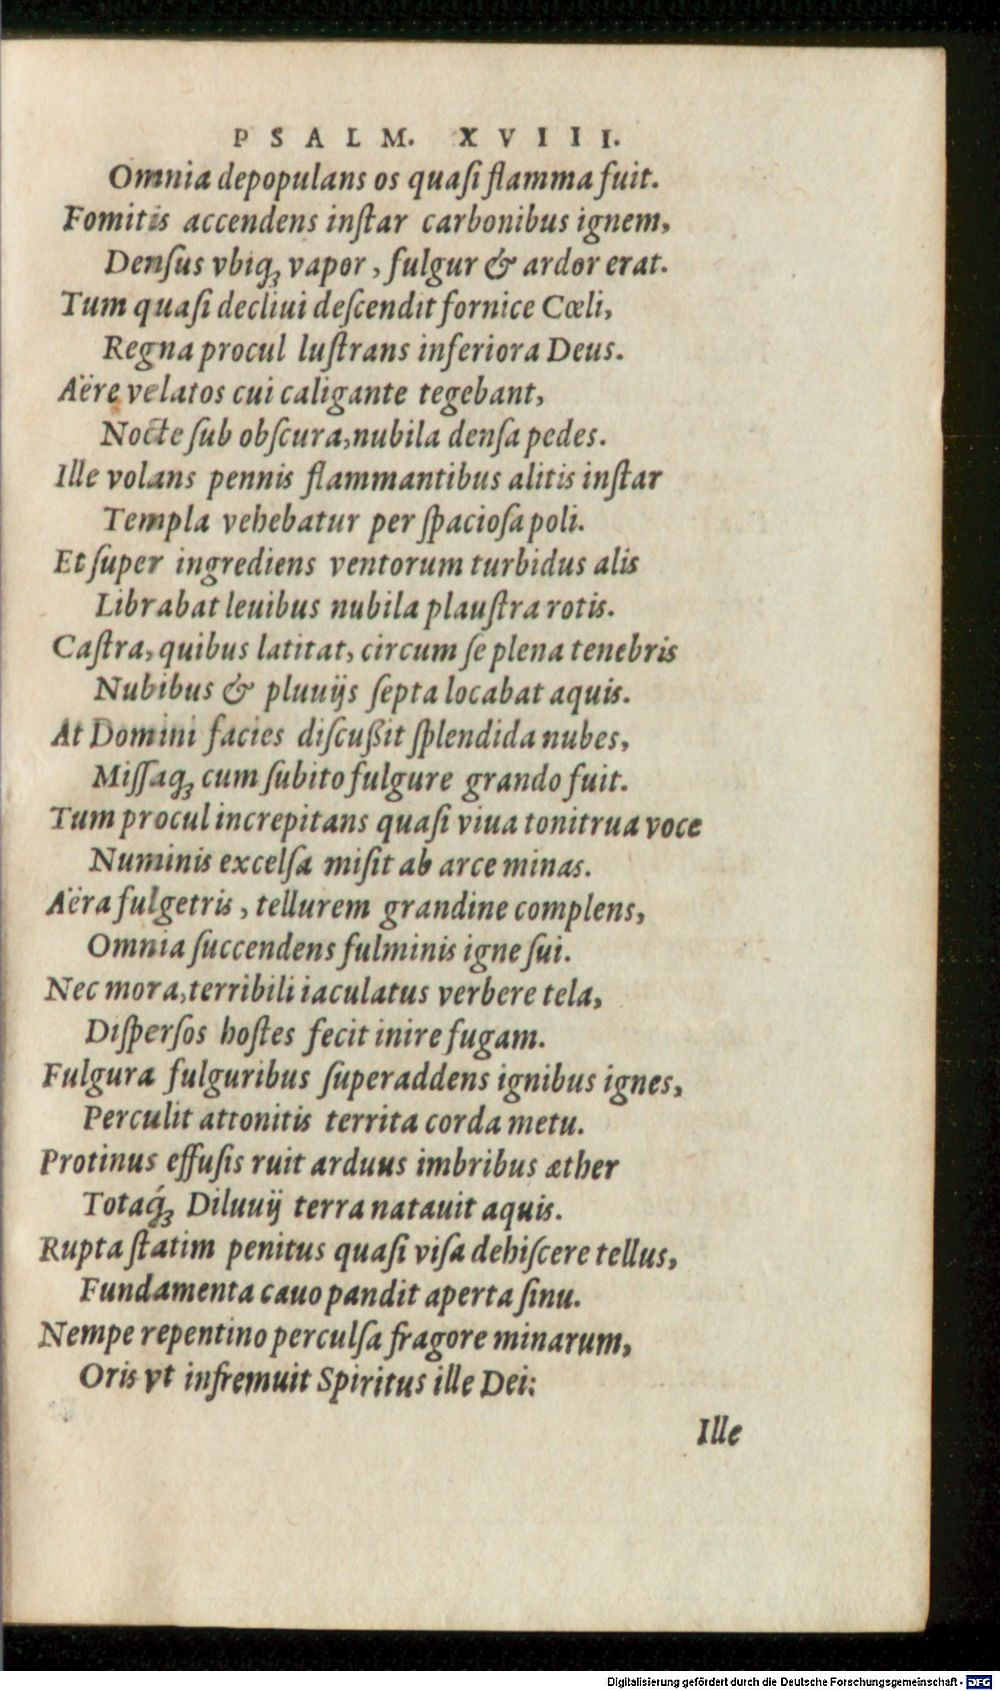 PSALM. XVIII.
Omnia depopulans os quaſi flamma fuit.
Fomitis accendens inſtar carbonibus ignem,
Denſus vbiq́ꝫ vapor, fulgur & ardor erat.
Tum quaſi decliui deſcendit fornice Cœli,
Regna procul luſtrans inferiora Deus.
Aëre velatos cui caligante tegebant,
Nocte ſub obſcura, nubila denſa pedes.
Ille volans pennis flammantibus alitis inſtar
Templa vehebatur per ſpacioſa poli.
Et ſuper ingrediens ventorum turbidus alis
Librabat leuibus nubila plauſtra rotis.
Caſtra, quibus latitat, circum ſe plena tenebris
Nubibus & pluuijs ſepta locabat aquis.
At Domini facies diſcußit ſplendida nubes,
Miſſaqꝫ cum ſubito fulgure grando fuit.
Tum procul increpitans quaſi viua tonitrua voce
Numinis excelſa miſit ab arce minas.
Aëra fulgetris, tellurem grandine complens,
Omnia ſuccendens fulminis igne ſui.
Nec mora, terribili iaculatus verbere tela,
Diſperſos hoſtes fecit inire fugam.
Fulgura fulguribus ſuperaddens ignibus ignes,
Perculit attonitis territa corda metu.
Protinus effuſis ruit arduus imbribus æther
Totaq́ꝫ Diluuij terra natauit aquis.
Rupta ſtatim penitus quaſi viſa dehiſcere tellus,
Fundamenta cauo pandit aperta ſinu.
Nempe repentino perculſa fragore minarum,
Oris vt infremuit Spiritus ille Dei:
Ille
Digitalisierung gefördert durch die Deutsche Forschungsgemeinschaft - DFG